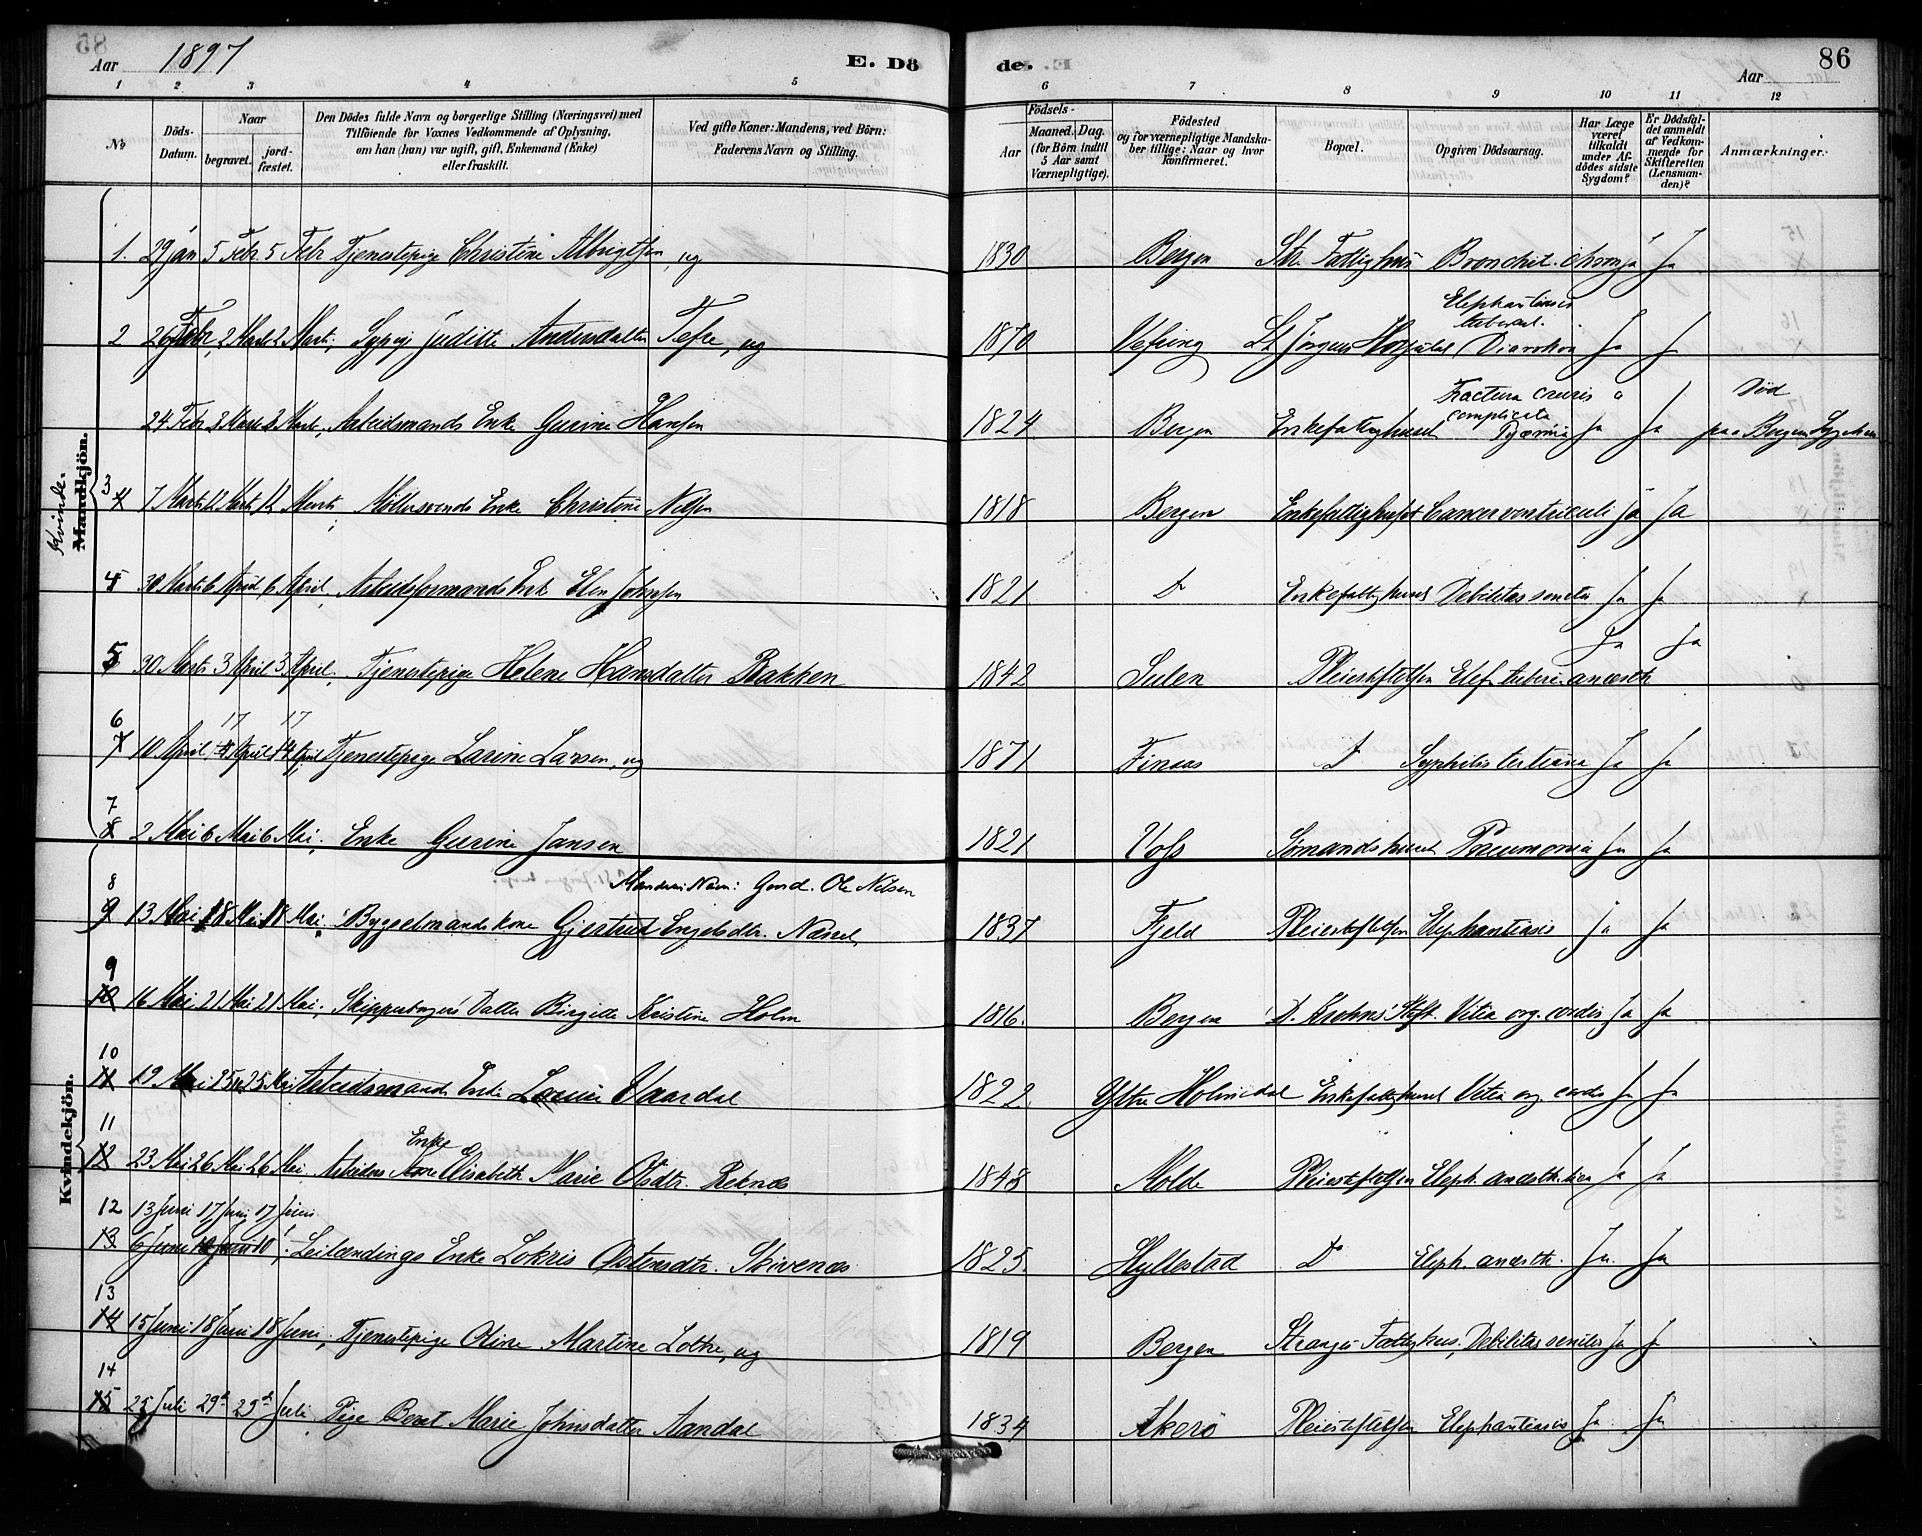 85
Aar 1897
E. Dö
de.
86
Aar
1 2 3 4 5 6 7 8 9 10 11 12
No
Döds-Datum.
Naar
begravet.
jord-fæstet.
Den Dödes fulde Navn og borgerlige Stilling (Næringsvei) med
Tilföiende for Voxnes Vedkommende af Oplysning,
om han (hun) var ugift, gift, Enkemand (Enke)
eller fraskilt.
Ved gifte Koner: Mandens, ved Börn:
Faderens Navn og Stilling.
Födsels-
Aar
Maaned. Dag.
(for Börn indtil
5 Aar samt
Værnepligtige).
Födested
og for værnepligtige Mandska-
ber tillige: Naar og hvor
konfirmeret.
Bopæl.
Opgiven Dödsaarsag.
Har Læge
været
tilkaldt
under Af-
dödes sidste
Sygdom?
Er Dödsfal-
det anmeldt
af Vedkom-
mende for
Skifteretten
(Lensman-
den)?
Anmærkninger.
Kvinde.
Mandkjön.
1. 29 Jan 5 Febr 5 Febr Tjenestepige Christine Albrigtsen, ug 1830 Bergen Str. Fattighus Bronchit. chron Ja Ja
2 26 Febr. 2 Marts 2 Marts, Sypige Judithe Andersdatter Tefre, ug 1870 Vefsring St Jørgens Hospital Elephantiasis tubercul. Diarrhoe Ja Ja
24 Febr 3 Marts 3 Marts, Arbeidsmands Enke Gurine Hansen 1824 Bergen Enkefattighuset Fractura cruris complicata Pyæmia Ja Ja Død paa Bergens Sygehus
3 4 7 Marts 12 Marts 12 Marts, Møllersvends Enke Christine Nilsen 1818 Bergen Enkefattighuset Cancer ventriculi Ja Ja
4 5 30 Marts 6 April 6 April, Arbeidsformands Enke Elen Johnsen 1821 Do Enkefattighuset Debilitas senilis Ja Ja
5 6 30 Marts 3 April 3 April, Tjenestepige Helene Hansdatter Bakken 1842 Sulen Pleiestiftelsen Elef. tuberc. anæsth Ja Ja
6 7 10 April 17 April 17 April Tjenestepige Larine Larsen, ug 1871 Finaas Do Syphilis tertiaria Ja Ja
7 8 2 Mai 6 Mai 6 Mai, Enke Gurine Jansen 1821 Voss Sømandshuset Pneumonia Ja Ja
Kvindekjön.
Mandens Navn: Gmd. Ole Nilsen
8 9 13 Mai 18 Mai 18 Mai, Byggselmandskone Gjertrud Engelsdtr. Næsset 1837 Fjeld Pleiestiftelsen Elephantiasis Ja Ja
9 10 16 Mai 21 Mai 21 Mai, Skipperborgers Datter Birgitte Kristine Holm 1816. Bergen D. Krohns Stift. Vitia org. cordis Ja Ja
10 11 19 Mai 25 25 Mai Arbeidsmands Enke Vaardal 1822 Ytre Holmedal Enkefattighuset Vitia org. cordis Ja Ja
11 12 23 Mai 26 Mai 26 Mai, Arbeiders Kone Enke Elisabeth Marie Olsdtr. Reknes 1848 Molde Pleiestiftelsen Eleph. anæsthetica Ja Ja
12 13 Juni 17 Juni 17 Juni
13 6 Juni 10 Juni 10, Leilændings Enke Lokris Østensdtr. Skivenes 1825. Hyllestad Do Eleph. anæsth. Ja Ja
13 14 15 Juni 18 Juni 18 Juni, Tjenestepige Oline Martine Lothe, ug 1819 Bergen Stranges Fattighus, Debilitas senilis Ja Ja
14 15 25 Juli 29d 29d Juli, Pige Beret Marie Johnsdatter Aandal 1834 Akerø Pleiestiftelsen Elephantiasis Ja Ja